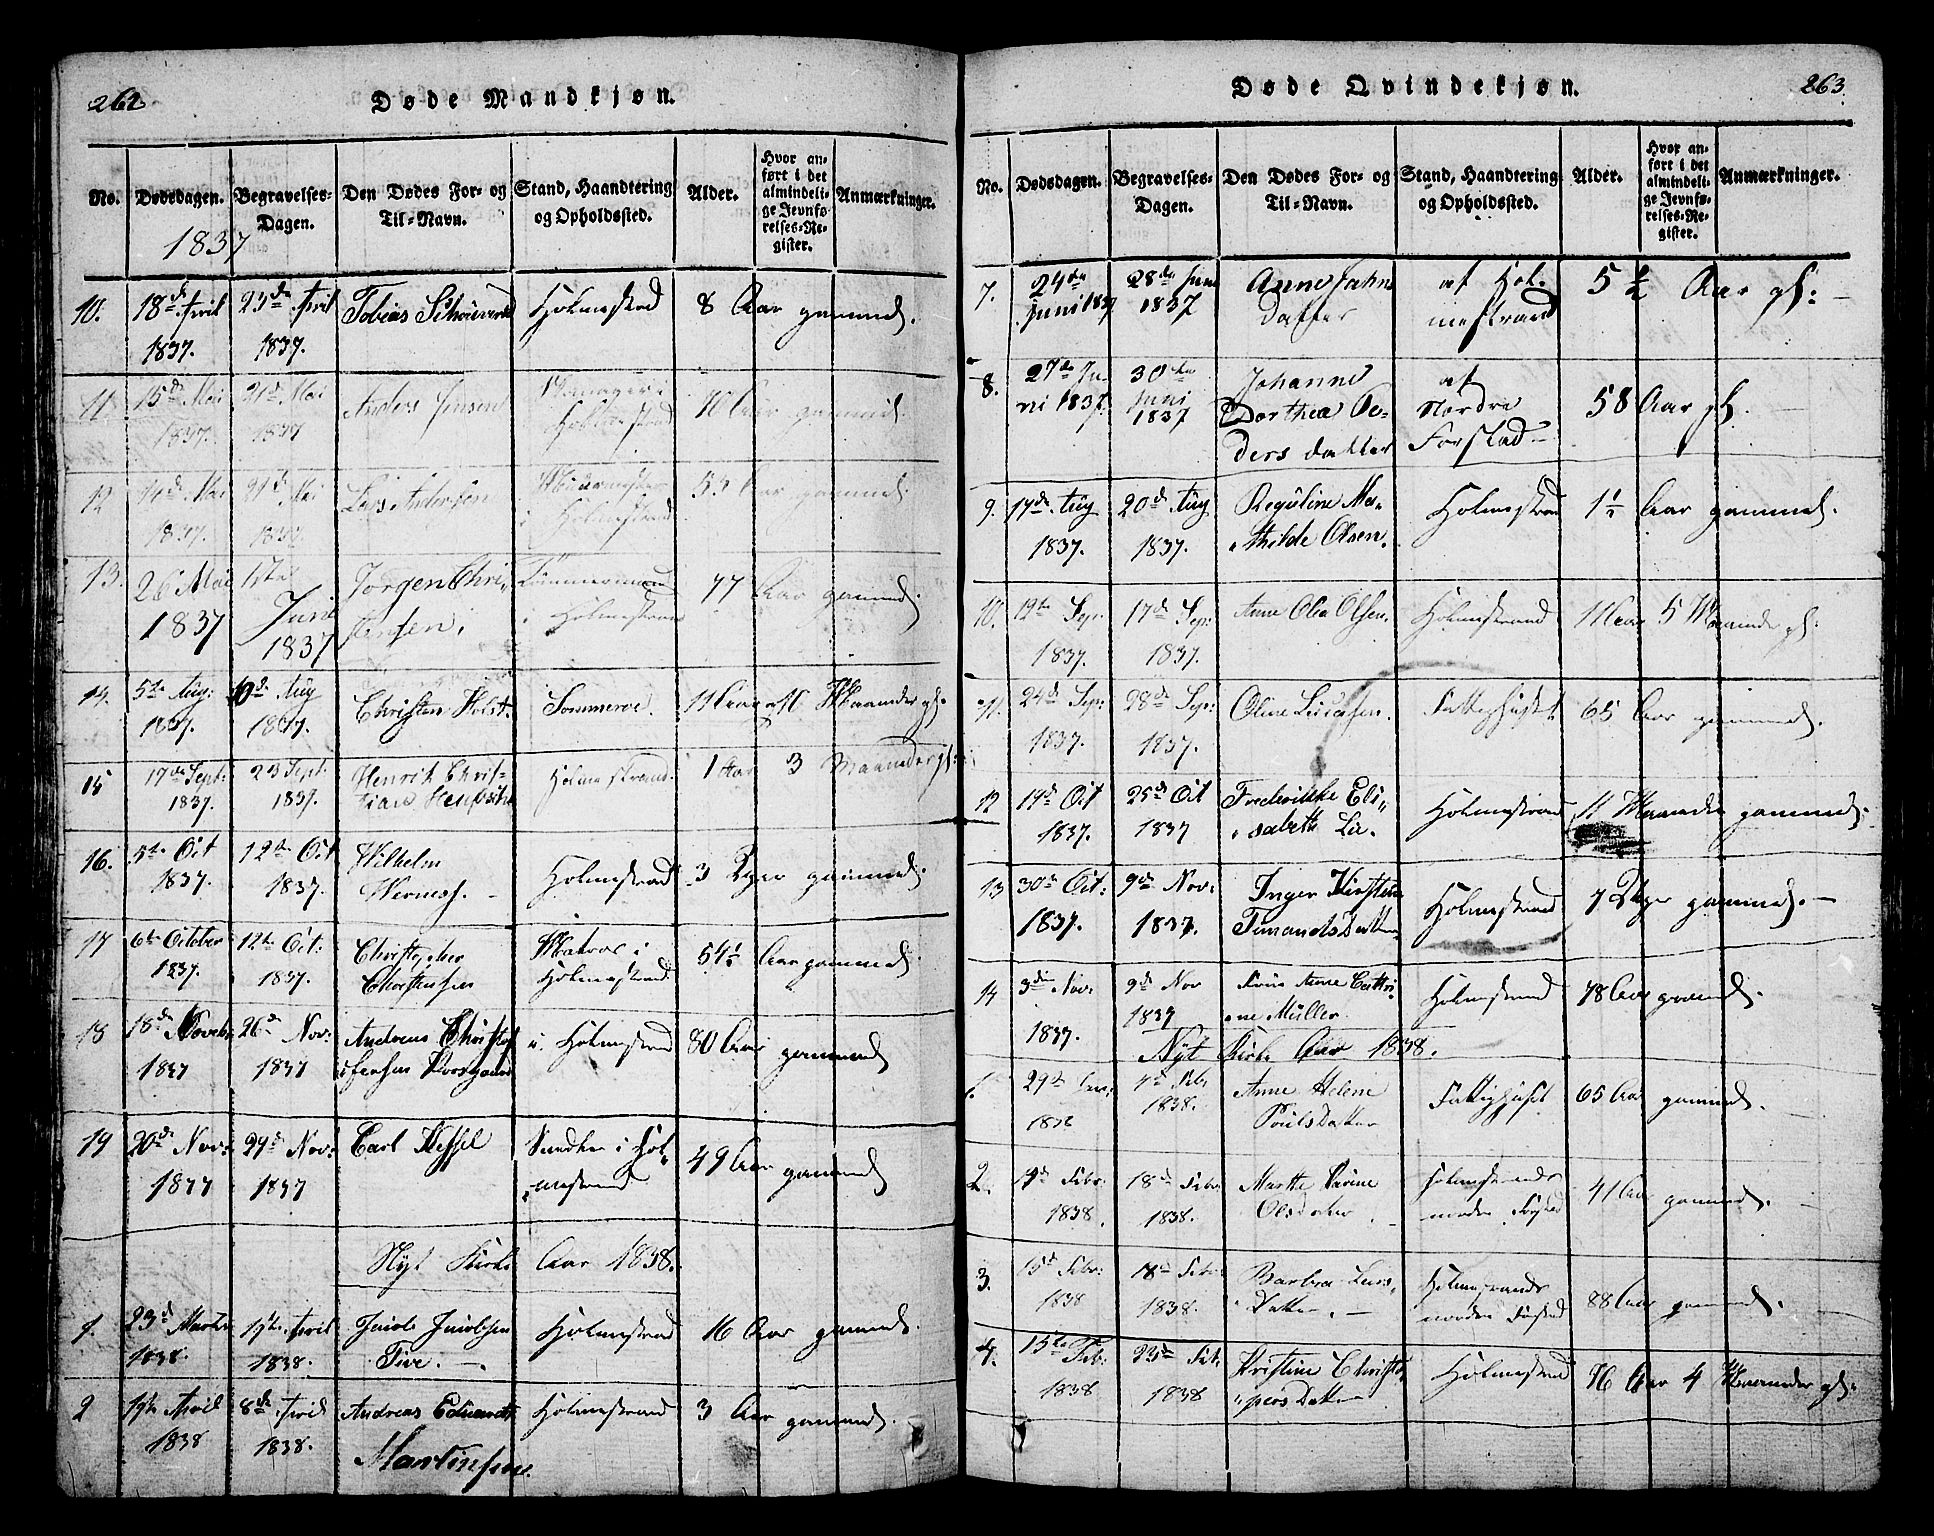 262
Døde Mandkjøn.
No. Dødsdagen. Begravelses-Dagen. Den Dødes For- og Til-Navn. Stand, Haandtering og Opholdssted. Alder. Hvor anført i det almindelige Jevnførelses-Register. Anmærkninger.
1837
10. 18de April 23de April Tobias Holmestrand 8 Aar gammel.
1837. 1837.
11. 15de Mai 21de Mai Anders Jensen i 70 Aar gammel.
1837. 1837
12 Mai 21de Mai Lars Andersen Muurmester 55 Aar gammel.
1837. 1837 i Holmestrand
13. 26 Mai 1ste Jørgen Chri- Tømmermand 77 Aar gammel.
1837 Juni stensen. i Holmestrand
1837
14. 5te Aug: 10de Aug Christen Holst. 1 Aar og 10 Maaneder gl.
1837. 1837.
15 17de Sept: 23 Sept: Henrik Chris- Holmestrand. 1 Aar 3 Maaneder gl:
1837. 1837. tian
16. 5te Oct 12te Oct Wilhelm Holmestrand 3 Uger gammel.
1837. 1837.
17 6te October 12te Oct: Christopher Matros i 54½ Aar gammel.
1837. 1837. Christensen Holmestrand
18 18de Novebr 26de Nov: Andreas Christof- i Holmestrand 80 Aar gammel
1837 1837 fersen
19 20de Nov: 29de Nov: Carl Hessel i Hol- 49 Aar gammel
1837 1837 mestrand
Nyt Kirke Aar 1838.
1. 23de Marts 1ste April Jacob Jacobsen Holmestrand 16 Aar gammel.
1838. 1838. Five.
2 1ste April 8de April Andreas Edvard Holmestrand 3 Aar gammel.
1838 1838. Martinsen.
263
Døde Qvindekjøn.
No. Dødsdagen. Begravelses-Dagen. Den Dødes For- og Til-Navn. Stand, Haandtering og Opholdssted. Alder. Hvor anført i det almindelige Jevnførelses-Register. Anmærkninger.
7. 24de 28de Juni Anne Jahns af Hol- 5½ Aar gl:
Juni 1837 1837 Datter mestrand
8. 27de Ju- 30te Johanne af 58 Aar gl.
ni 1837. Juni Dorthea Pe- Nordre
1837 ders datter Forstad
9. 17de Aug 20de Aug Reguline Ma- Holmestrand 1½ Aar gammel.
1837. 1837. thilde Olsen.
10. 12te Sep: 17de Sep: Anne Olea Olsen. Holmestrand 1 Aar 5 Maaneder gl:
1837. 1837.
11. 24de Sep: 28de Sep: Oline Fattighuset 65 Aar gammel.
1837. 1837.
12 19de Oct 25de Oct Frederikke Eli- Holmestrand 11 Maaneder gammel.
1837. 1837 sabeth Lie.
13 30te Oct: 9de Nov: Inger Kirstine Holmestrand 7 Uger gammel.
1837. 1837. Datter
14 3die Nov: 9de Nov Anne Cathri- Holmestrand 78 Aar gammel.
1837. 1837 ne Müller.
Nyt Kirke Aar 1838.
1. 29de Jan: 4de Febr Anne Helene Fattighuset 65 Aar gammel.
1838 1838. Pouls Datter
2. 14de Febr: 18de Febr Marthe Karine Holmestrands 41 Aar gammel.
1838. 1838. Olsdatter nordre Forstad
3. 15de Febr: 18de Febr: Barbra Lars Holmestrands 88 Aar gammel.
1838 1838. Datter. nordre Forstad
4. 15te Feb: 23de Feb. Kristine Christo- Holmestrand 76 Aar 4 Maaneder gl:
1838 1838 phers Datter